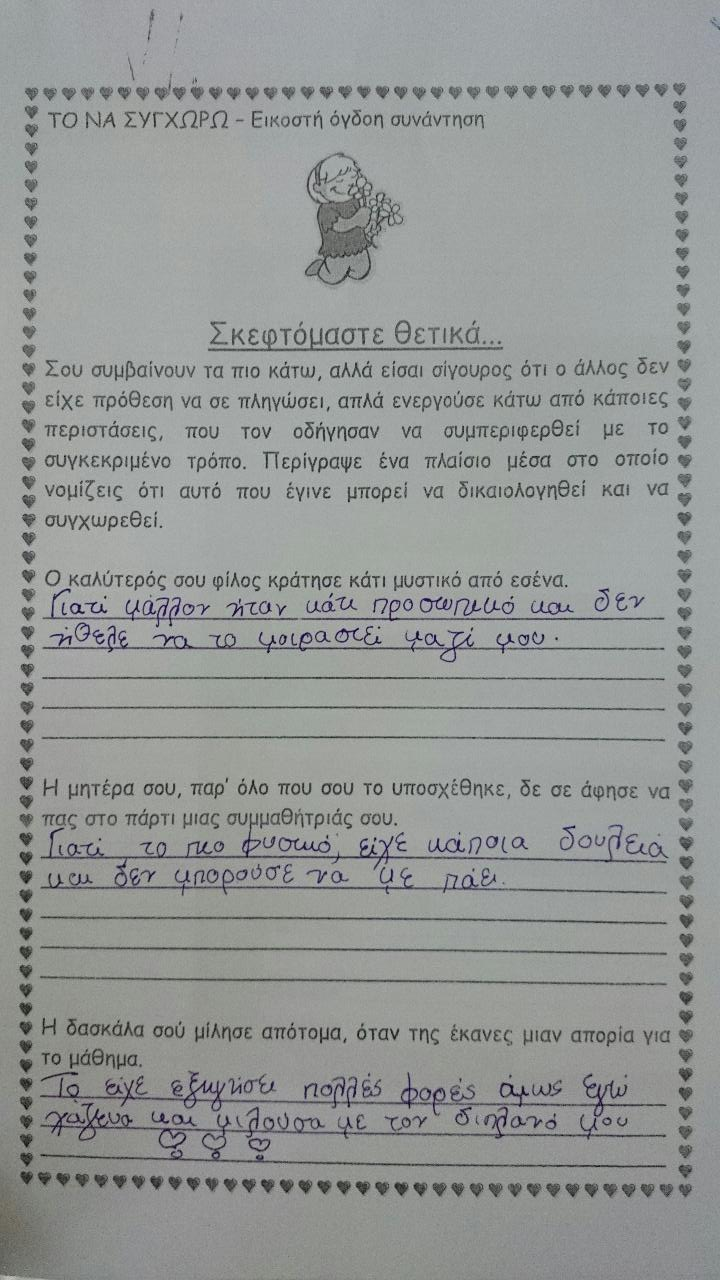 ΤΟ ΝΑ ΣΥΓΧΩΡΩ – Εικοστή όγδοη συνάντηση
Σκεφτόμαστε θετικά...
Σου συμβαίνουν τα πιο κάτω, αλλά είσαι σίγουρος ότι ο άλλος δεν
είχε πρόθεση να σε πληγώσει, απλά ενεργούσε κάτω από κάποιες
περιστάσεις, που τον οδήγησαν να συμπεριφερθεί με το
συγκεκριμένο τρόπο. Περίγραψε ένα πλαίσιο μέσα στο οποίο
νομίζεις ότι αυτό που έγινε μπορεί να δικαιολογηθεί και να
συγχωρεθεί.
Ο καλύτερός σου φίλος κράτησε κάτι μυστικό από εσένα.
Γιατί μάλλον ήταν κάτι προσωπικό και δεν
ήθελε να το μοιραστεί μαζί μου.
Η μητέρα σου, παρ' όλο που σου το υποσχέθηκε, δε σε άφησε να
πας στο πάρτι μιας συμμαθήτριάς σου.
Γιατί το πιο φυσικό, είχε κάποια δουλειά
και δεν μπορούσε να με πάει.
Η δασκάλα σού μίλησε απότομα, όταν της έκανες μιαν απορία για
το μάθημα.
Το είχε εξηγήσει πολλές φορές όμως εγώ
χάζευα και μιλούσα με τον διπλανό μου